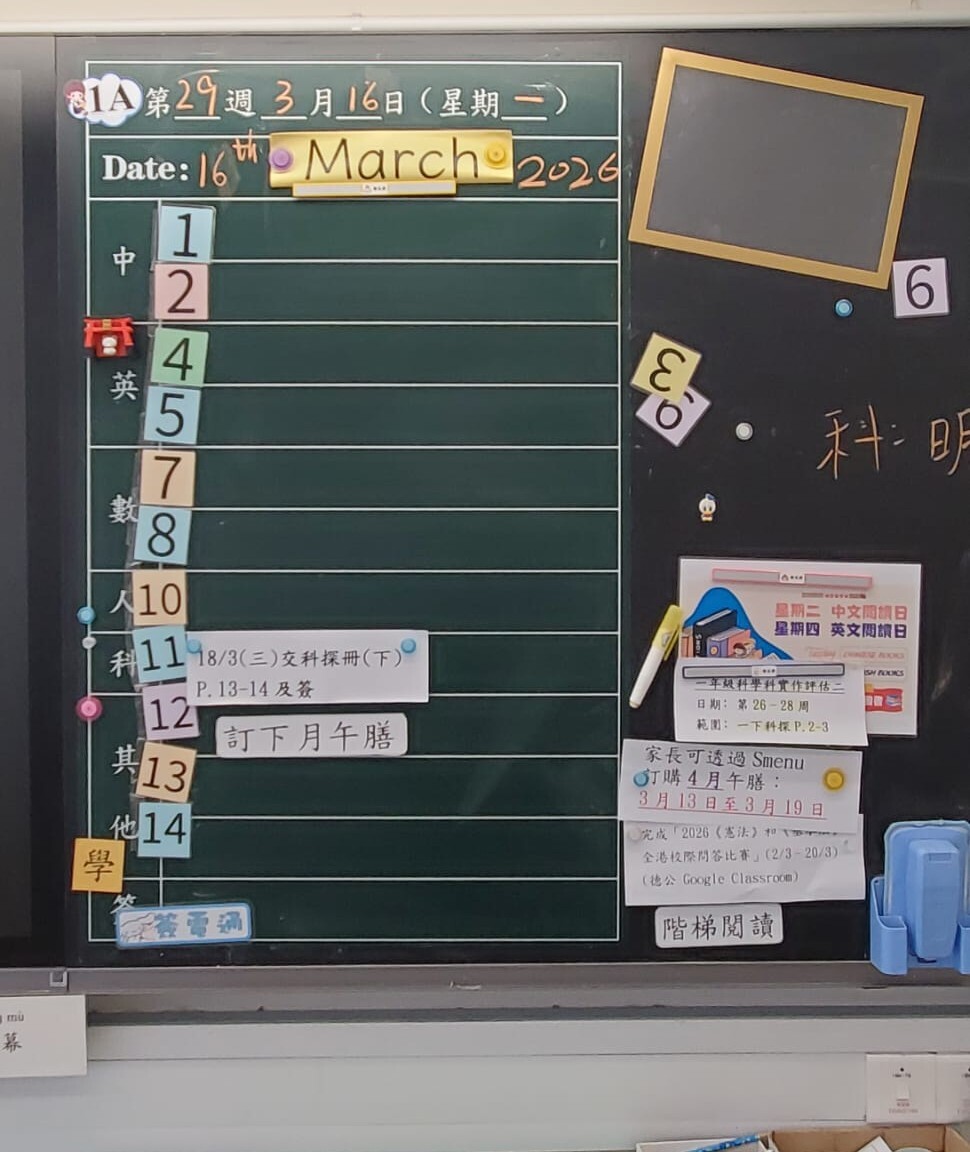 1A 第29週 3月16日（星期一）
Date: 16th March 2026
中
1
2
英
4
5
數
7
8
人
10
科
11
18/3(三)交科探冊(下)
P.13-14及簽
12
訂下月午膳
其
13
他
14
學
簽電通
6
3
6
科: 明
星期二 中文閱讀日
星期四 英文閱讀日
一年級科學科實作評估二
日期: 第26-28周
範圍: 一下科探P.2-3
家長可透過 Smenu
訂購4月午膳:
3月13日至3月19日
完成「2026《憲法》和《基本法》
全港校際問答比賽」(2/3-20/3)
(德公 Google Classroom)
階梯閱讀
mù
幕